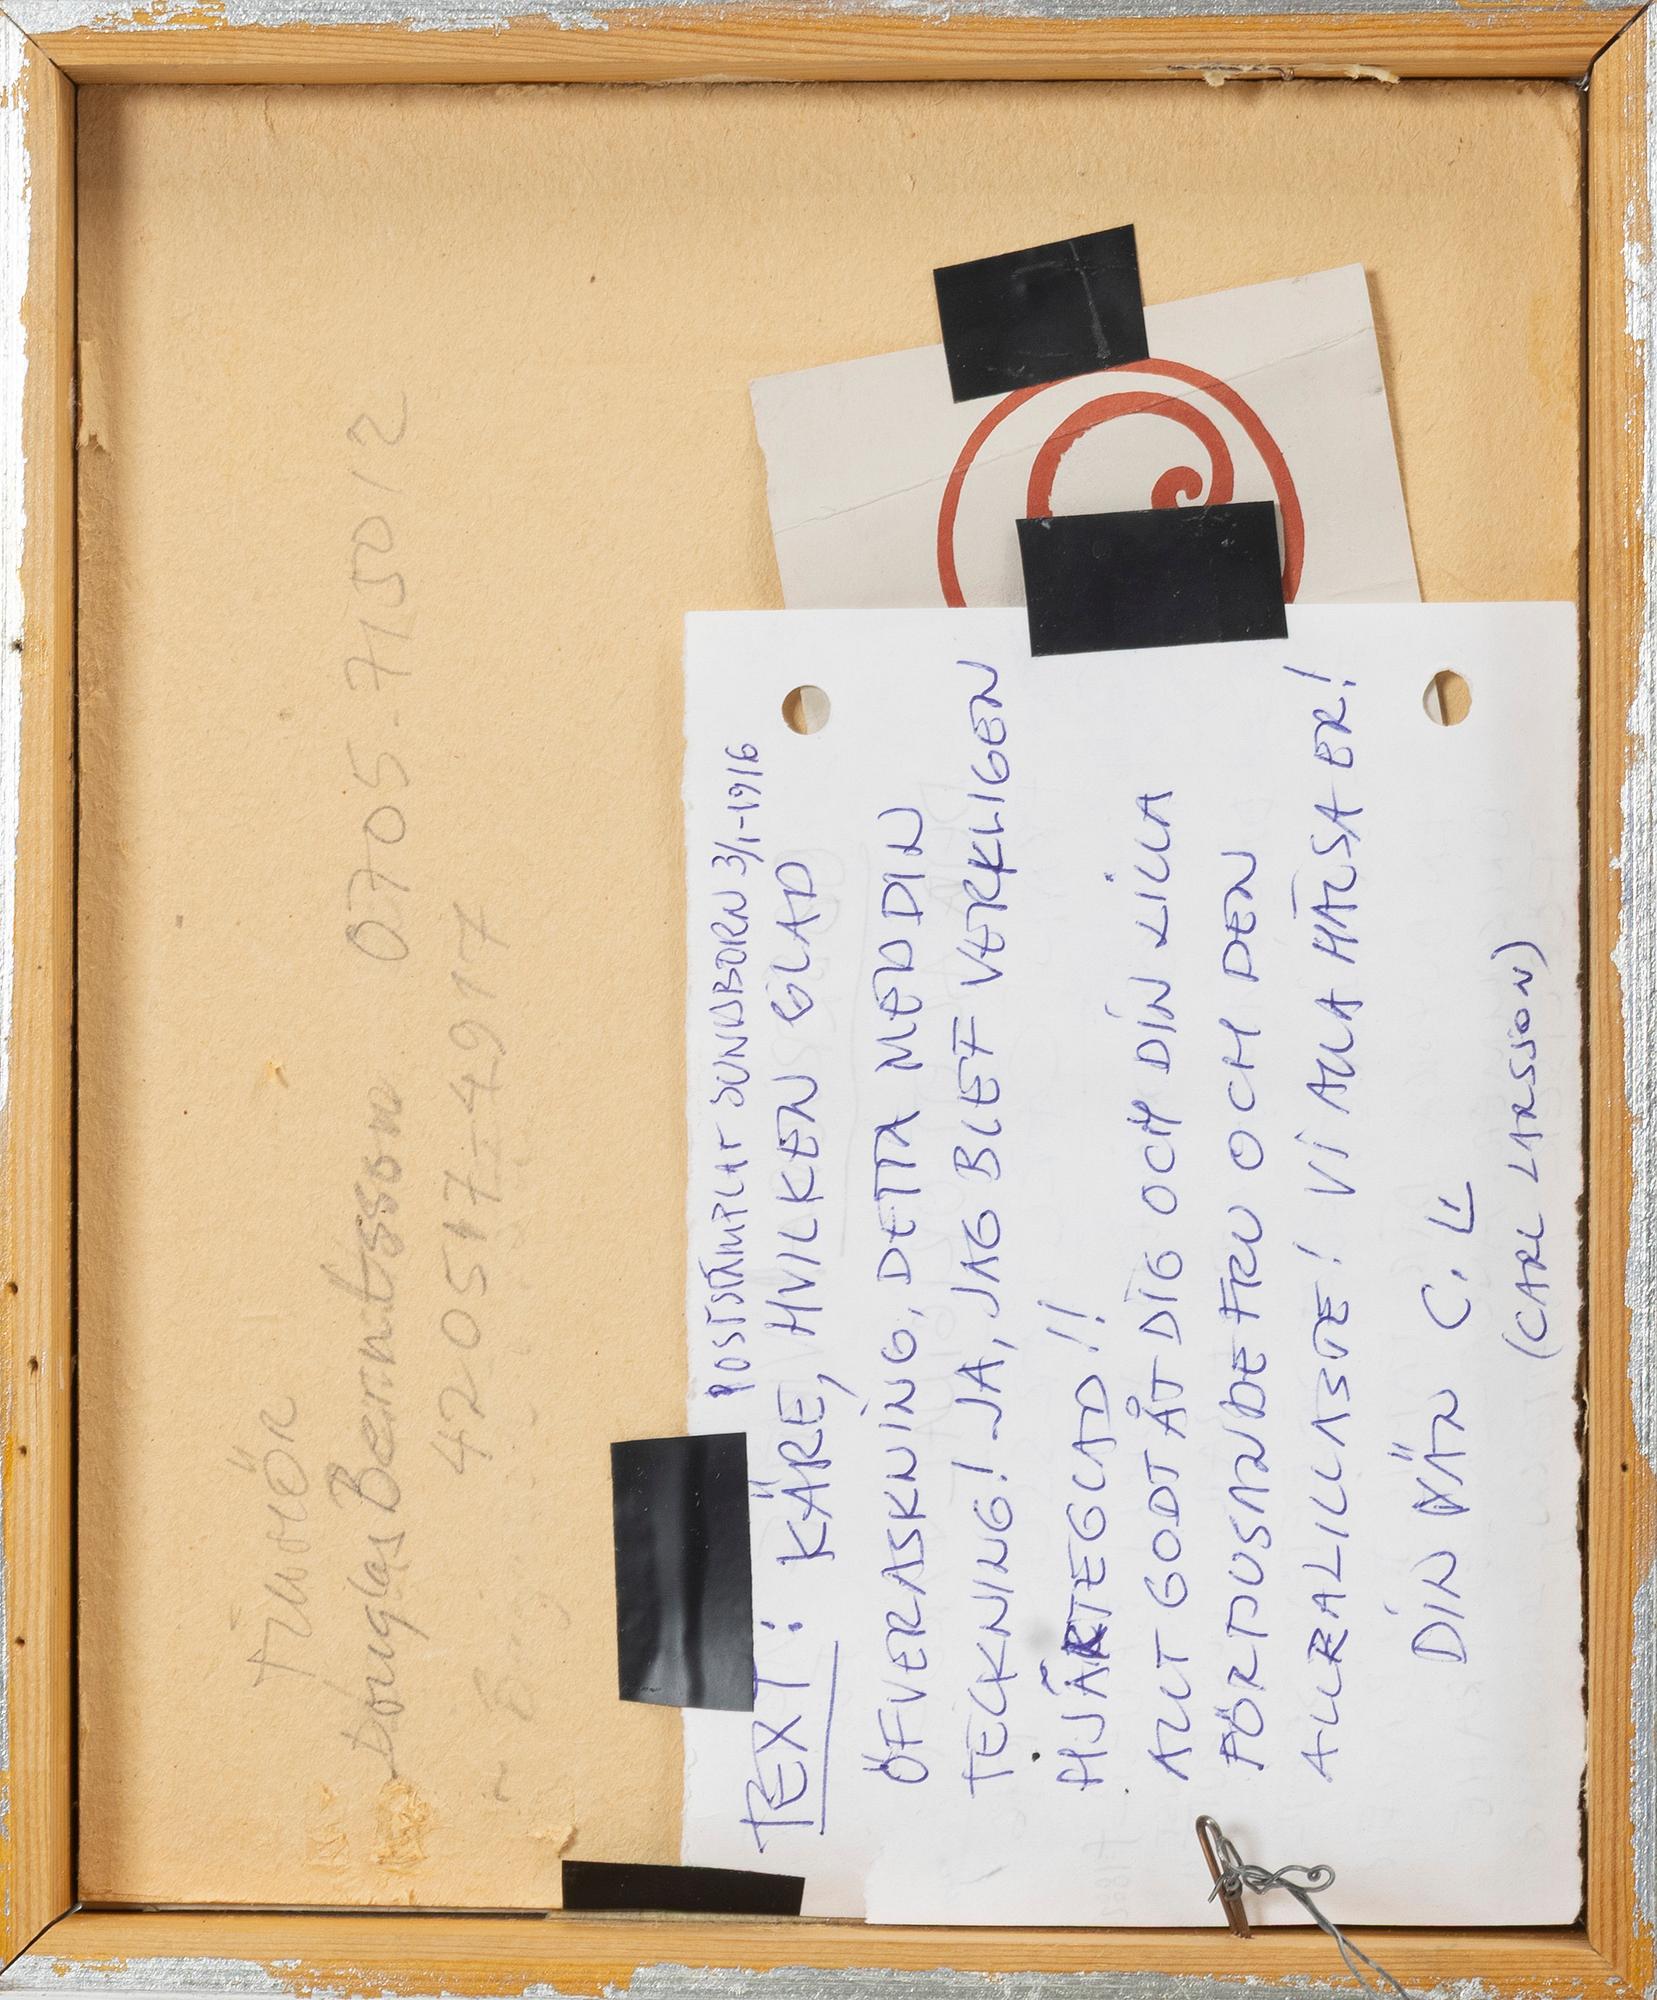 TILLHÖR
Douglas Berntsson 0705-715012
420517-4917
POSTSTÄMPLAT SUNDBORN 3/1-1916
TEXT: KÄRE, HVILKEN GLAD
ÖFVERASKNING, DETTA MED DIN
TECKNING! JA, JAG BLEF VERKLIGEN
HJÄRTEGLAD!!
ALLT GODT ÅT DIG OCH DIN LILLA
FÖRTJUSANDE FRU OCH DEN
ALLRALILLASTE! VI ALLA HÄLSA ER!
DIN VÄN C. L
(CARL LARSSON)